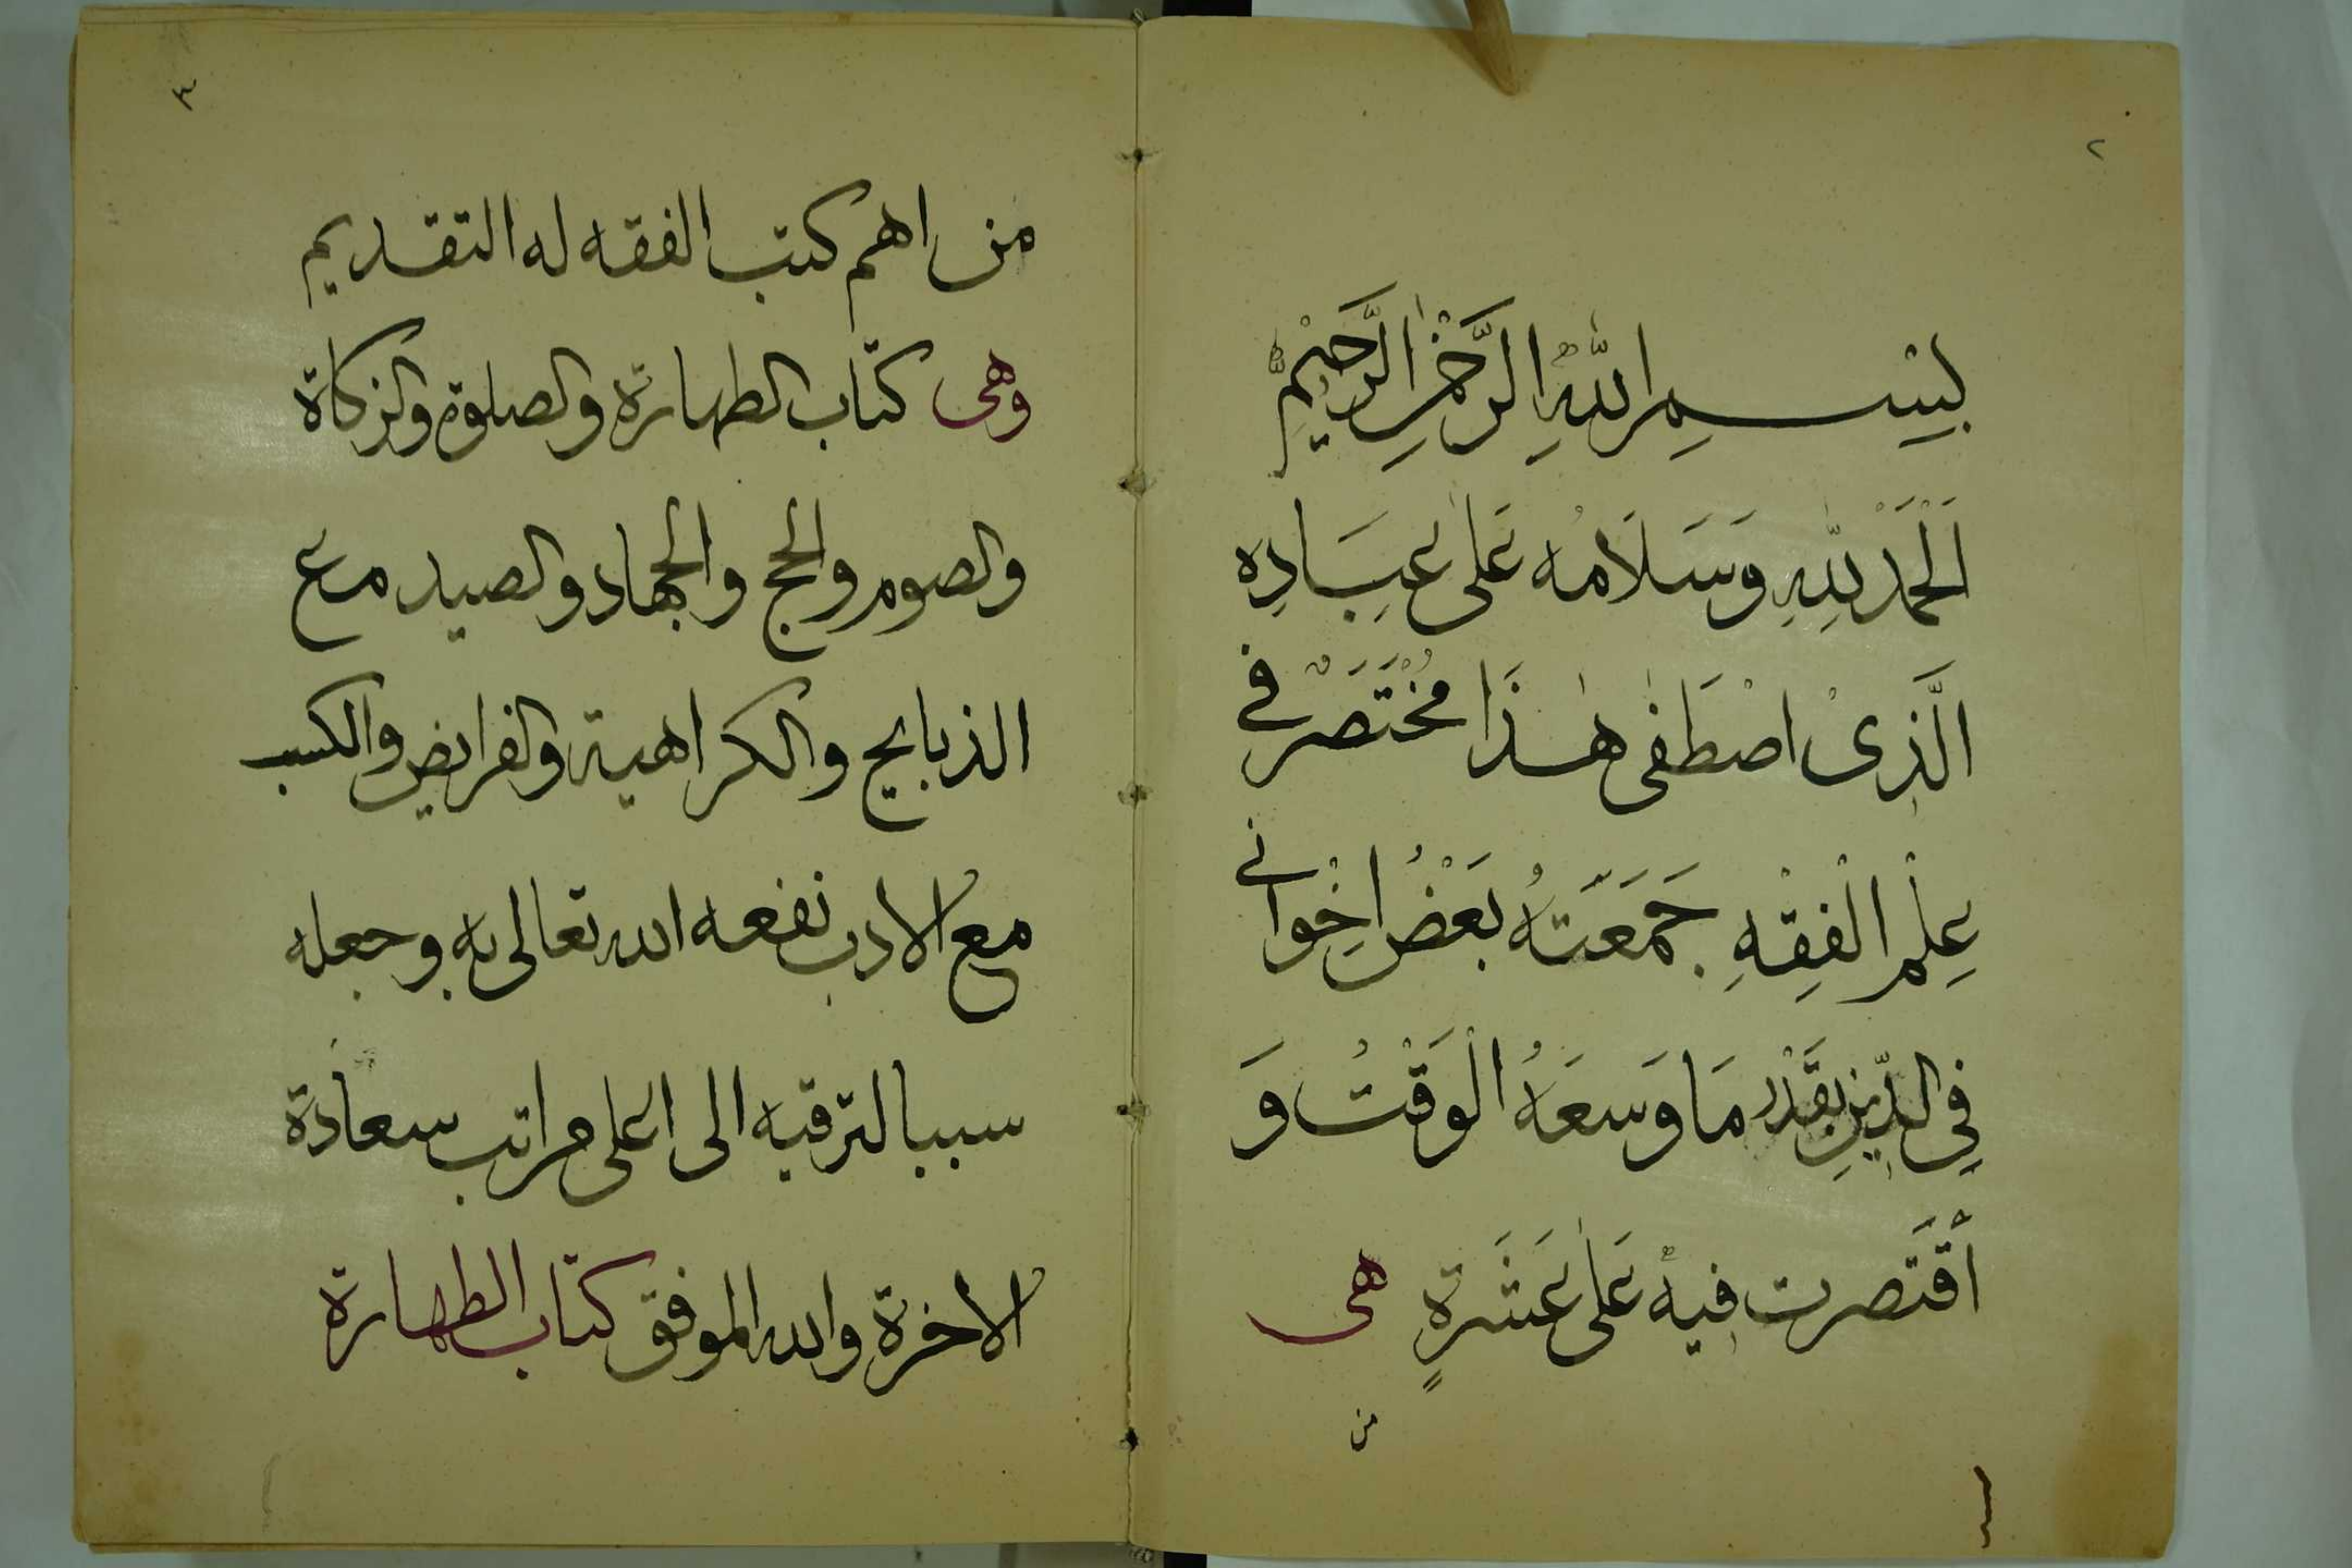 ٢
بِسْمِ اللّٰهِ الرَّحْمٰنِ الرَّحِيْمِ
اَلْحَمْدُ لِلّٰهِ وَسَلَامُه عَلٰى عِبَادِه
الَّذِىْ اصْطَفٰى هٰذَا مُخْتَصَرٌ فى
عِلْمِ الْفِقْهِ جَمَعْتُهُ بَعْضُ اِخْوانى
فِي الدِّيْنِ بِقَدْرِ مَا وَسَعَهُ الْوَقْتُ وَ
اَقْتَصرت فيهِ عَلٰى عَشَرةٍ هى
من
٣
من اهم كتب الفقه له التقديم
وهى كتاب الطهارة والصلوة والزكاة
والصوم والحج والجهاد والصيد مع
الذبايح والكراهية والفرايض والكسب
مع الادب نفعه الله تعالى به وجعله
سببا لترقيه الى اعلى مراتب سعادة
الاخرة والله الموفق كتاب الطهارة